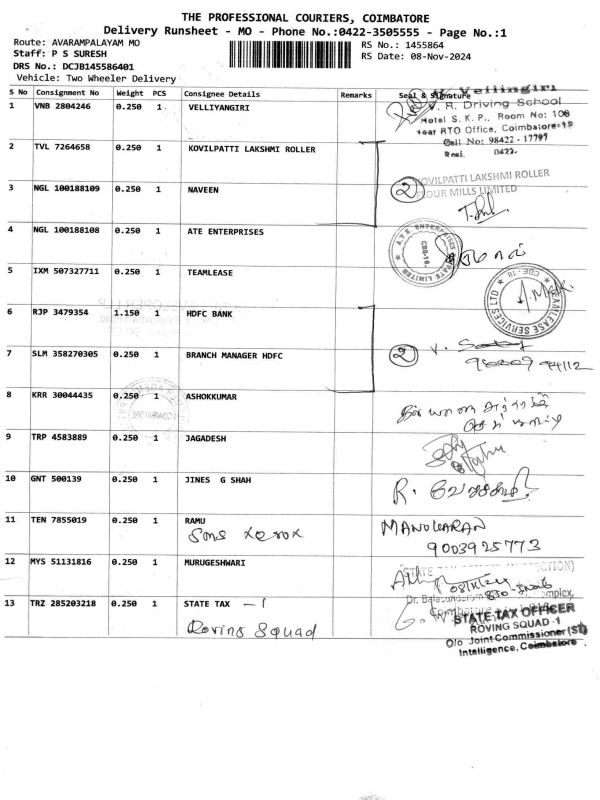 THE PROFESSIONAL COURIERS, COIMBATORE
Delivery Runsheet - MO - Phone No.:0422-3505555 - Page No.:1
Route: AVARAMPALAYAM MO
RS No.: 1455864
Staff: P S SURESH
RS Date: 08-Nov-2024
DRS No.: DCJB145586401
Vehicle: Two Wheeler Delivery
S No Consignment No Weight PCS Consignee Details Remarks Seal & Signature
1 VNB 2804246 0.250 1 VELLIYANGIRI
Vellingiri
V. R. Driving School
Hotel S. K. P., Room No: 108
Near RTO Office, Coimbatore-18
Cell No: 98422 - 17797
Resi. 0422-
2 TVL 7264658 0.250 1 KOVILPATTI LAKSHMI ROLLER
KOVILPATTI LAKSHMI ROLLER
FLOUR MILLS LIMITED
2
3 NGL 100188109 0.250 1 NAVEEN
4 NGL 100188108 0.250 1 ATE ENTERPRISES
A.T.E. ENTERPRISES PRIVATE LIMITED
CBE-18
5 IXM 507327711 0.250 1 TEAMLEASE
TEAMLEASE SERVICES LTD
CBE-18
6 RJP 3479354 1.150 1 HDFC BANK
7 SLM 358270305 0.250 1 BRANCH MANAGER HDFC
2
8 KRR 30044435 0.250 1 ASHOKKUMAR
9 TRP 4583889 0.250 1 JAGADESH
10 GNT 500139 0.250 1 JINES G SHAH
11 TEN 7855019 0.250 1 RAMU
Sms xerox
MANOHARAN
9003925773
12 MYS 51131816 0.250 1 MURUGESHWARI
13 TRZ 285203218 0.250 1 STATE TAX - 1
Roving Squad
STATE TAX OFFICER
ROVING SQUAD -1
O/o Joint Commissioner (ST)
Intelligence, Coimbatore